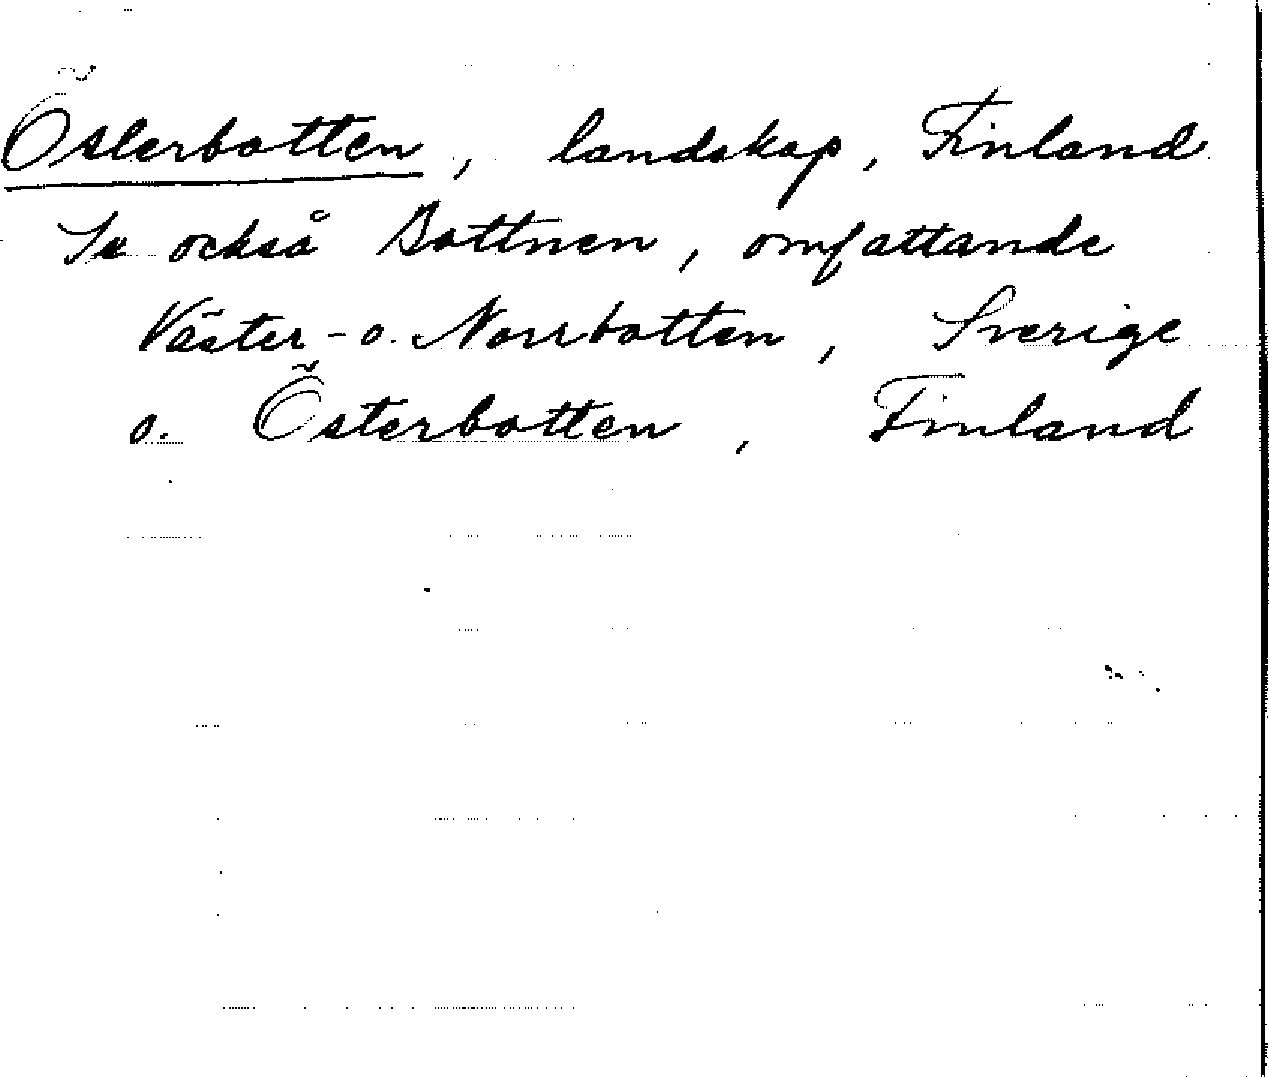 Österbotten, landskap, Finland
Se också Bottnen, omfattande
Väster- o. Norrbotten, Sverige
o. Österbotten, Finland